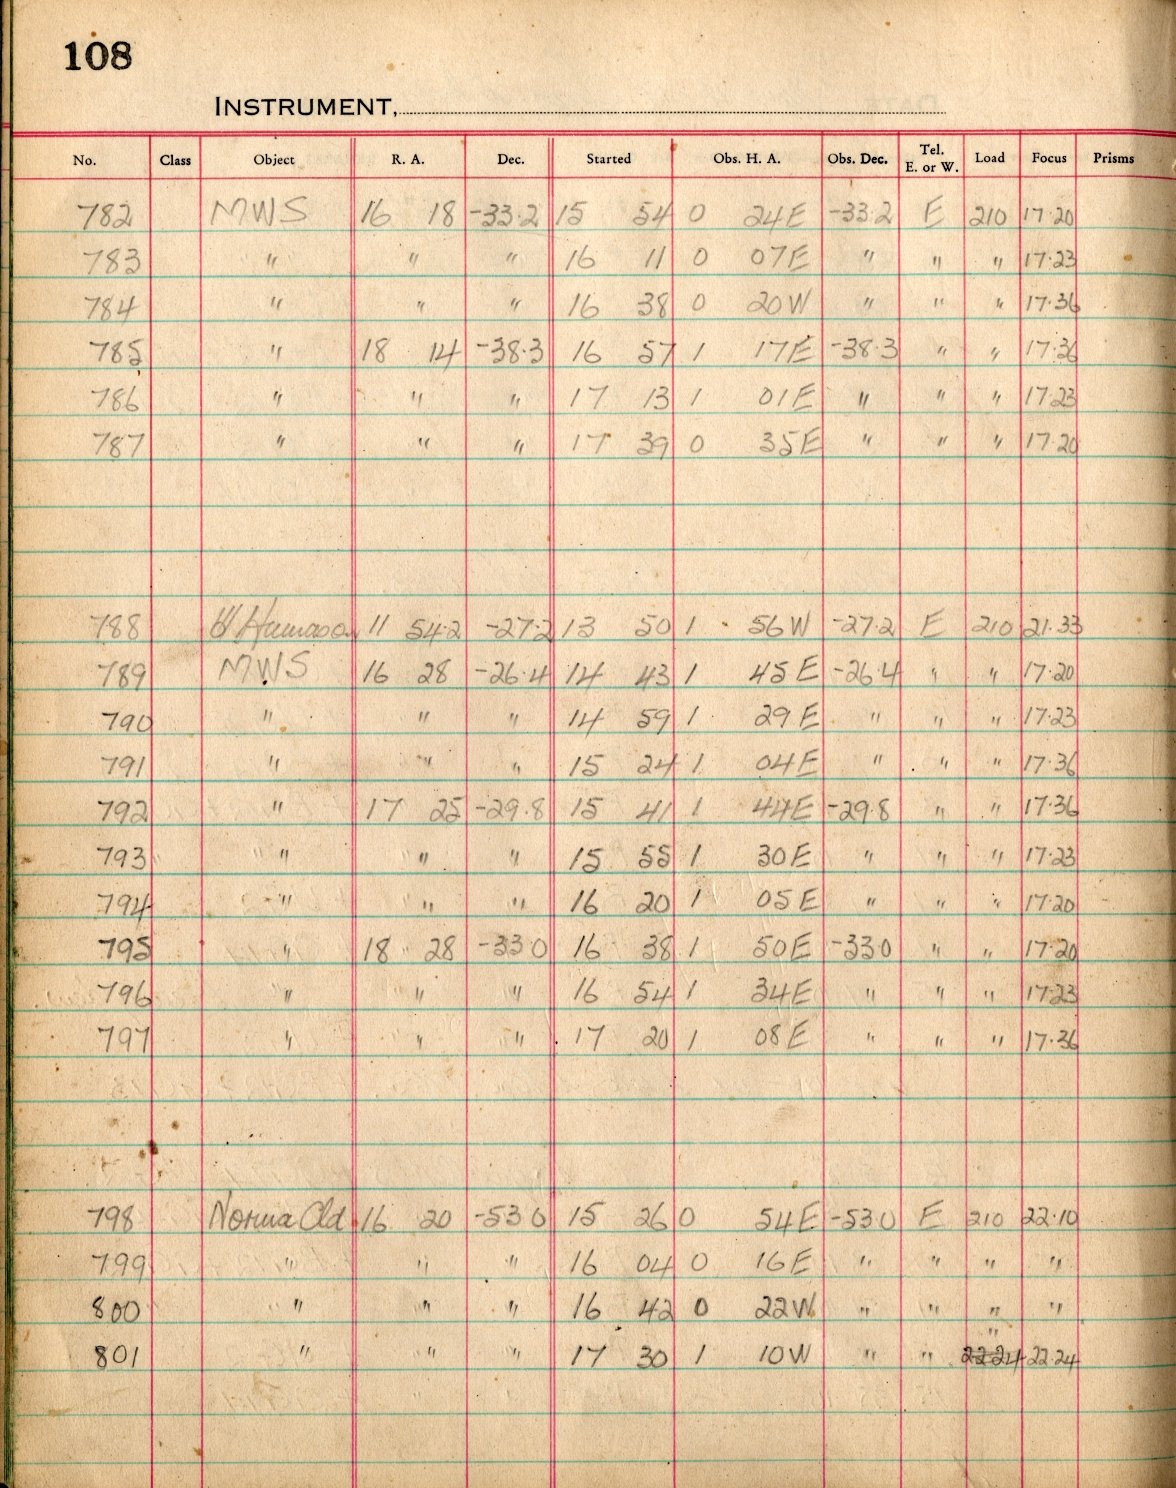 108
INSTRUMENT,
No. Class Object R. A. Dec. Started Obs. H. A. Obs. Dec. Tel. E. or W. Load Focus Prisms
782 MWS 16 18 -33.2 15 54 0 24E -33.2 E 210 17.20
783 " " " 16 11 0 07E " " " 17.23
784 " " " 16 38 0 20W " " " 17.36
785 " 18 14 -38.3 16 57 1 17E -38.3 " " 17.36
786 " " " 17 13 1 01E " " " 17.23
787 " " " 17 39 0 35E " " " 17.20
788 Humason 11 54.2 -27.2 13 50 1 56W -27.2 E 210 21.33
789 MWS 16 28 -26.4 14 43 1 45E -26.4 " " 17.20
790 " " " 14 59 1 29E " " " 17.23
791 " " " 15 24 1 04E " " " 17.36
792 " 17 25 -29.8 15 41 1 44E -29.8 " " 17.36
793 " " " 15 55 1 30E " " " 17.23
794 " " " 16 20 1 05E " " " 17.20
795 " 18 28 -33.0 16 38 1 50E -33.0 " " 17.20
796 " " " 16 54 1 34E " " " 17.23
797 " " " 17 20 1 08E " " " 17.36
798 Norma Cld 16 20 -53.0 15 26 0 54E -53.0 E 210 22.10
799 " " " 16 04 0 16E " " " "
800 " " " 16 42 0 22W " " " "
801 " " " 17 30 1 10W " " " 22.24 22.24